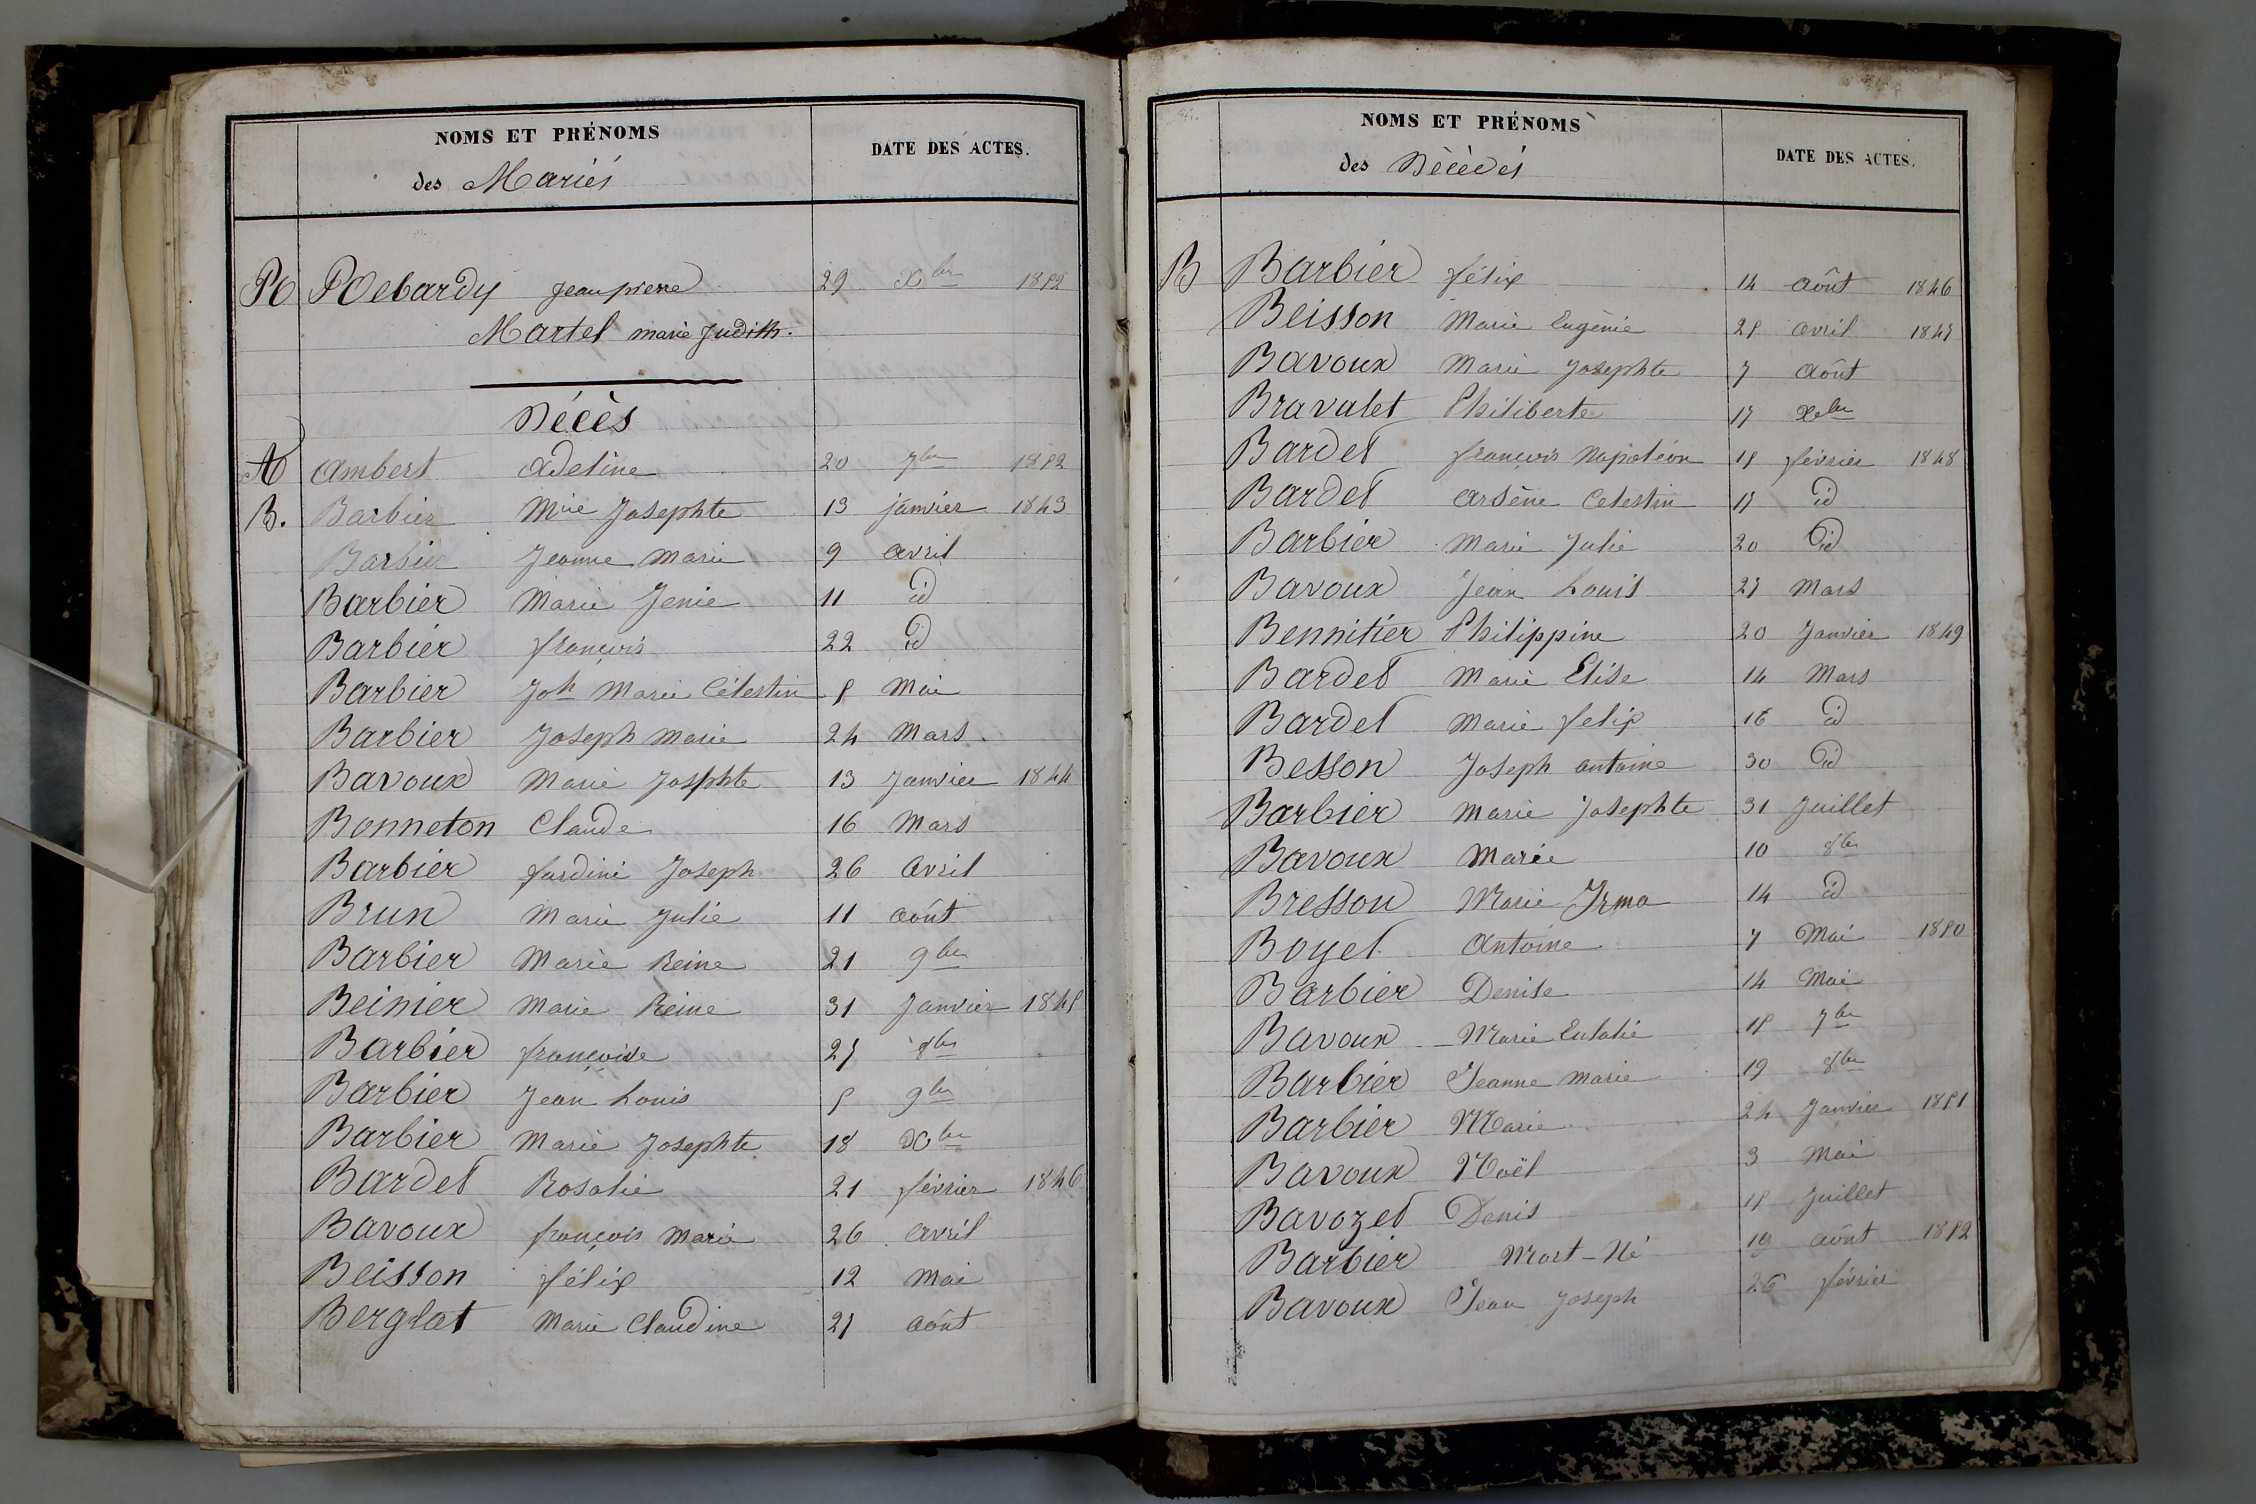 NOMS ET PRÉNOMS
des Mariés
DATE DES ACTES.
R Rebardy Jean pierre 29 Xbre 1852
Martel marie Judith.
Décès
A Ambert Adeline 20 7bre 1852
B. Barbier Mrie Josephte 13 janvier 1843
Barbier Jeanne Marie 9 avril
Barbier Marie Jenie 11 id
Barbier françois 22 id
Barbier Joh Marie Célestin 5 Mai
Barbier Joseph Marie 24 Mars
Bavoux Marie Josephte 13 Janvier 1844
Bonneton Claude 16 Mars
Barbier fardini Joseph 26 Avril
Brun Marie Julie 11 août
Barbier Marie Reine 21 9bre
Beinier Marie Reine 31 Janvier 1845
Barbier françoise 27 8bre
Barbier Jean Louis 5 9bre
Barbier Marie Josephte 18 Xbre
Bardet Rosalie 21 février 1846
Bavoux françois Marie 26 avril
Beisson félix 12 Mai
Berglat Marie Claudine 27 août
NOMS ET PRÉNOMS
des Décédés
DATE DES ACTES.
B Barbier félix 14 août 1846
Beisson Marie Eugénie 25 avril 1847
Bavoux Marie Josephte 7 Août
Bravalet Philiberte 17 Xbre
Bardet françois Napoléon 15 février 1848
Bardet Arsène Celestin 17 id
Barbier Marie Julie 20 id
Bavoux Jean Louis 27 Mars
Bennitier Philippine 20 Janvier 1849
Bardet Marie Elise 14 Mars
Bardet Marie felix 16 id
Besson Joseph antoine 30 id
Barbier Marie Josephte 31 Juillet
Bavoux Marie 10 8bre
Bresson Marie Irma 14 id
Boyet Antoine 7 Mai 1850
Barbier Denise 14 Mai
Bavoux Marie Eulalie 15 7bre
Barbier Jeanne Marie 19 8bre
Barbier Marie 24 Janvier 1851
Bavoux Noël 3 Mai
Bavozet Denis 15 Juillet
Barbier Mort-Né 19 août 1852
Bavoux Jean Joseph 26 février